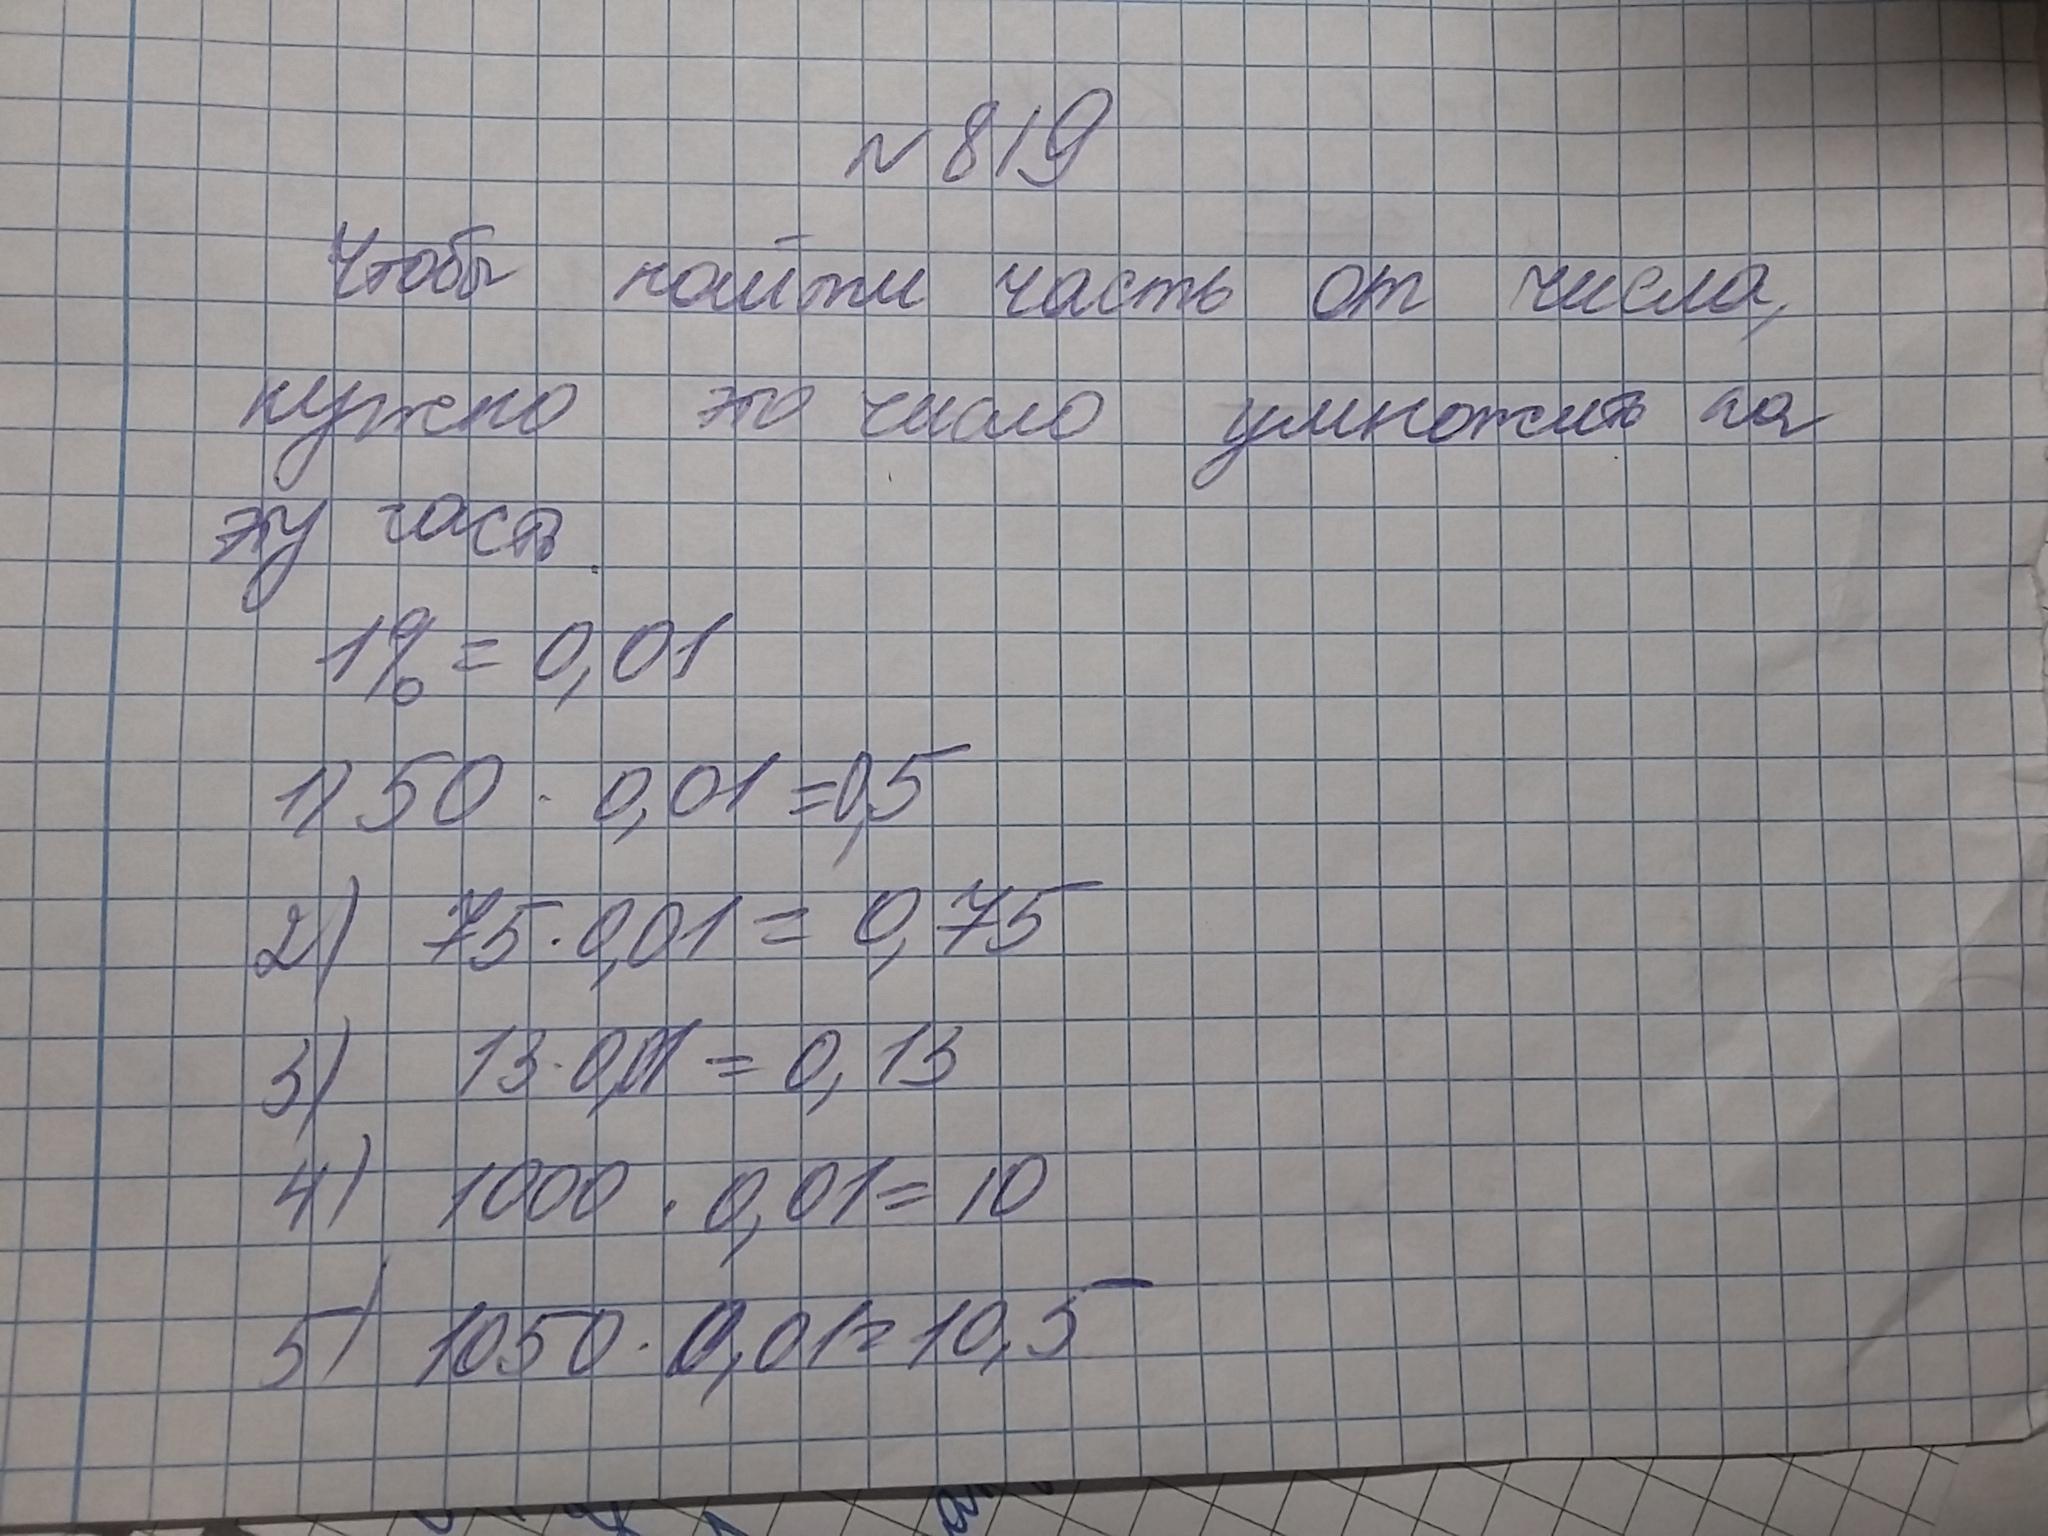 № 819
Чтобы найти часть от числа,
нужно это число умножить на
эту часть.
1% = 0,01
1) 50 · 0,01 = 0,5
2) 75 · 0,01 = 0,75
3) 13 · 0,01 = 0,13
4) 1000 · 0,01 = 10
5) 1050 · 0,01 = 10,5